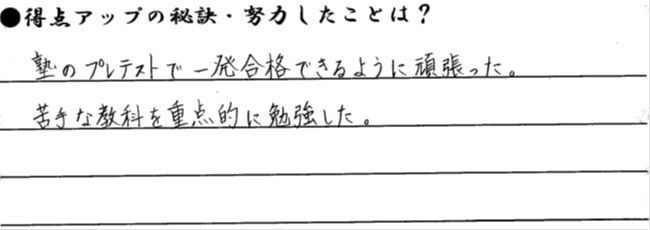 ●得点アップの秘訣・努力したことは？
塾のプレテストで一発合格できるように頑張った。
苦手な教科を重点的に勉強した。